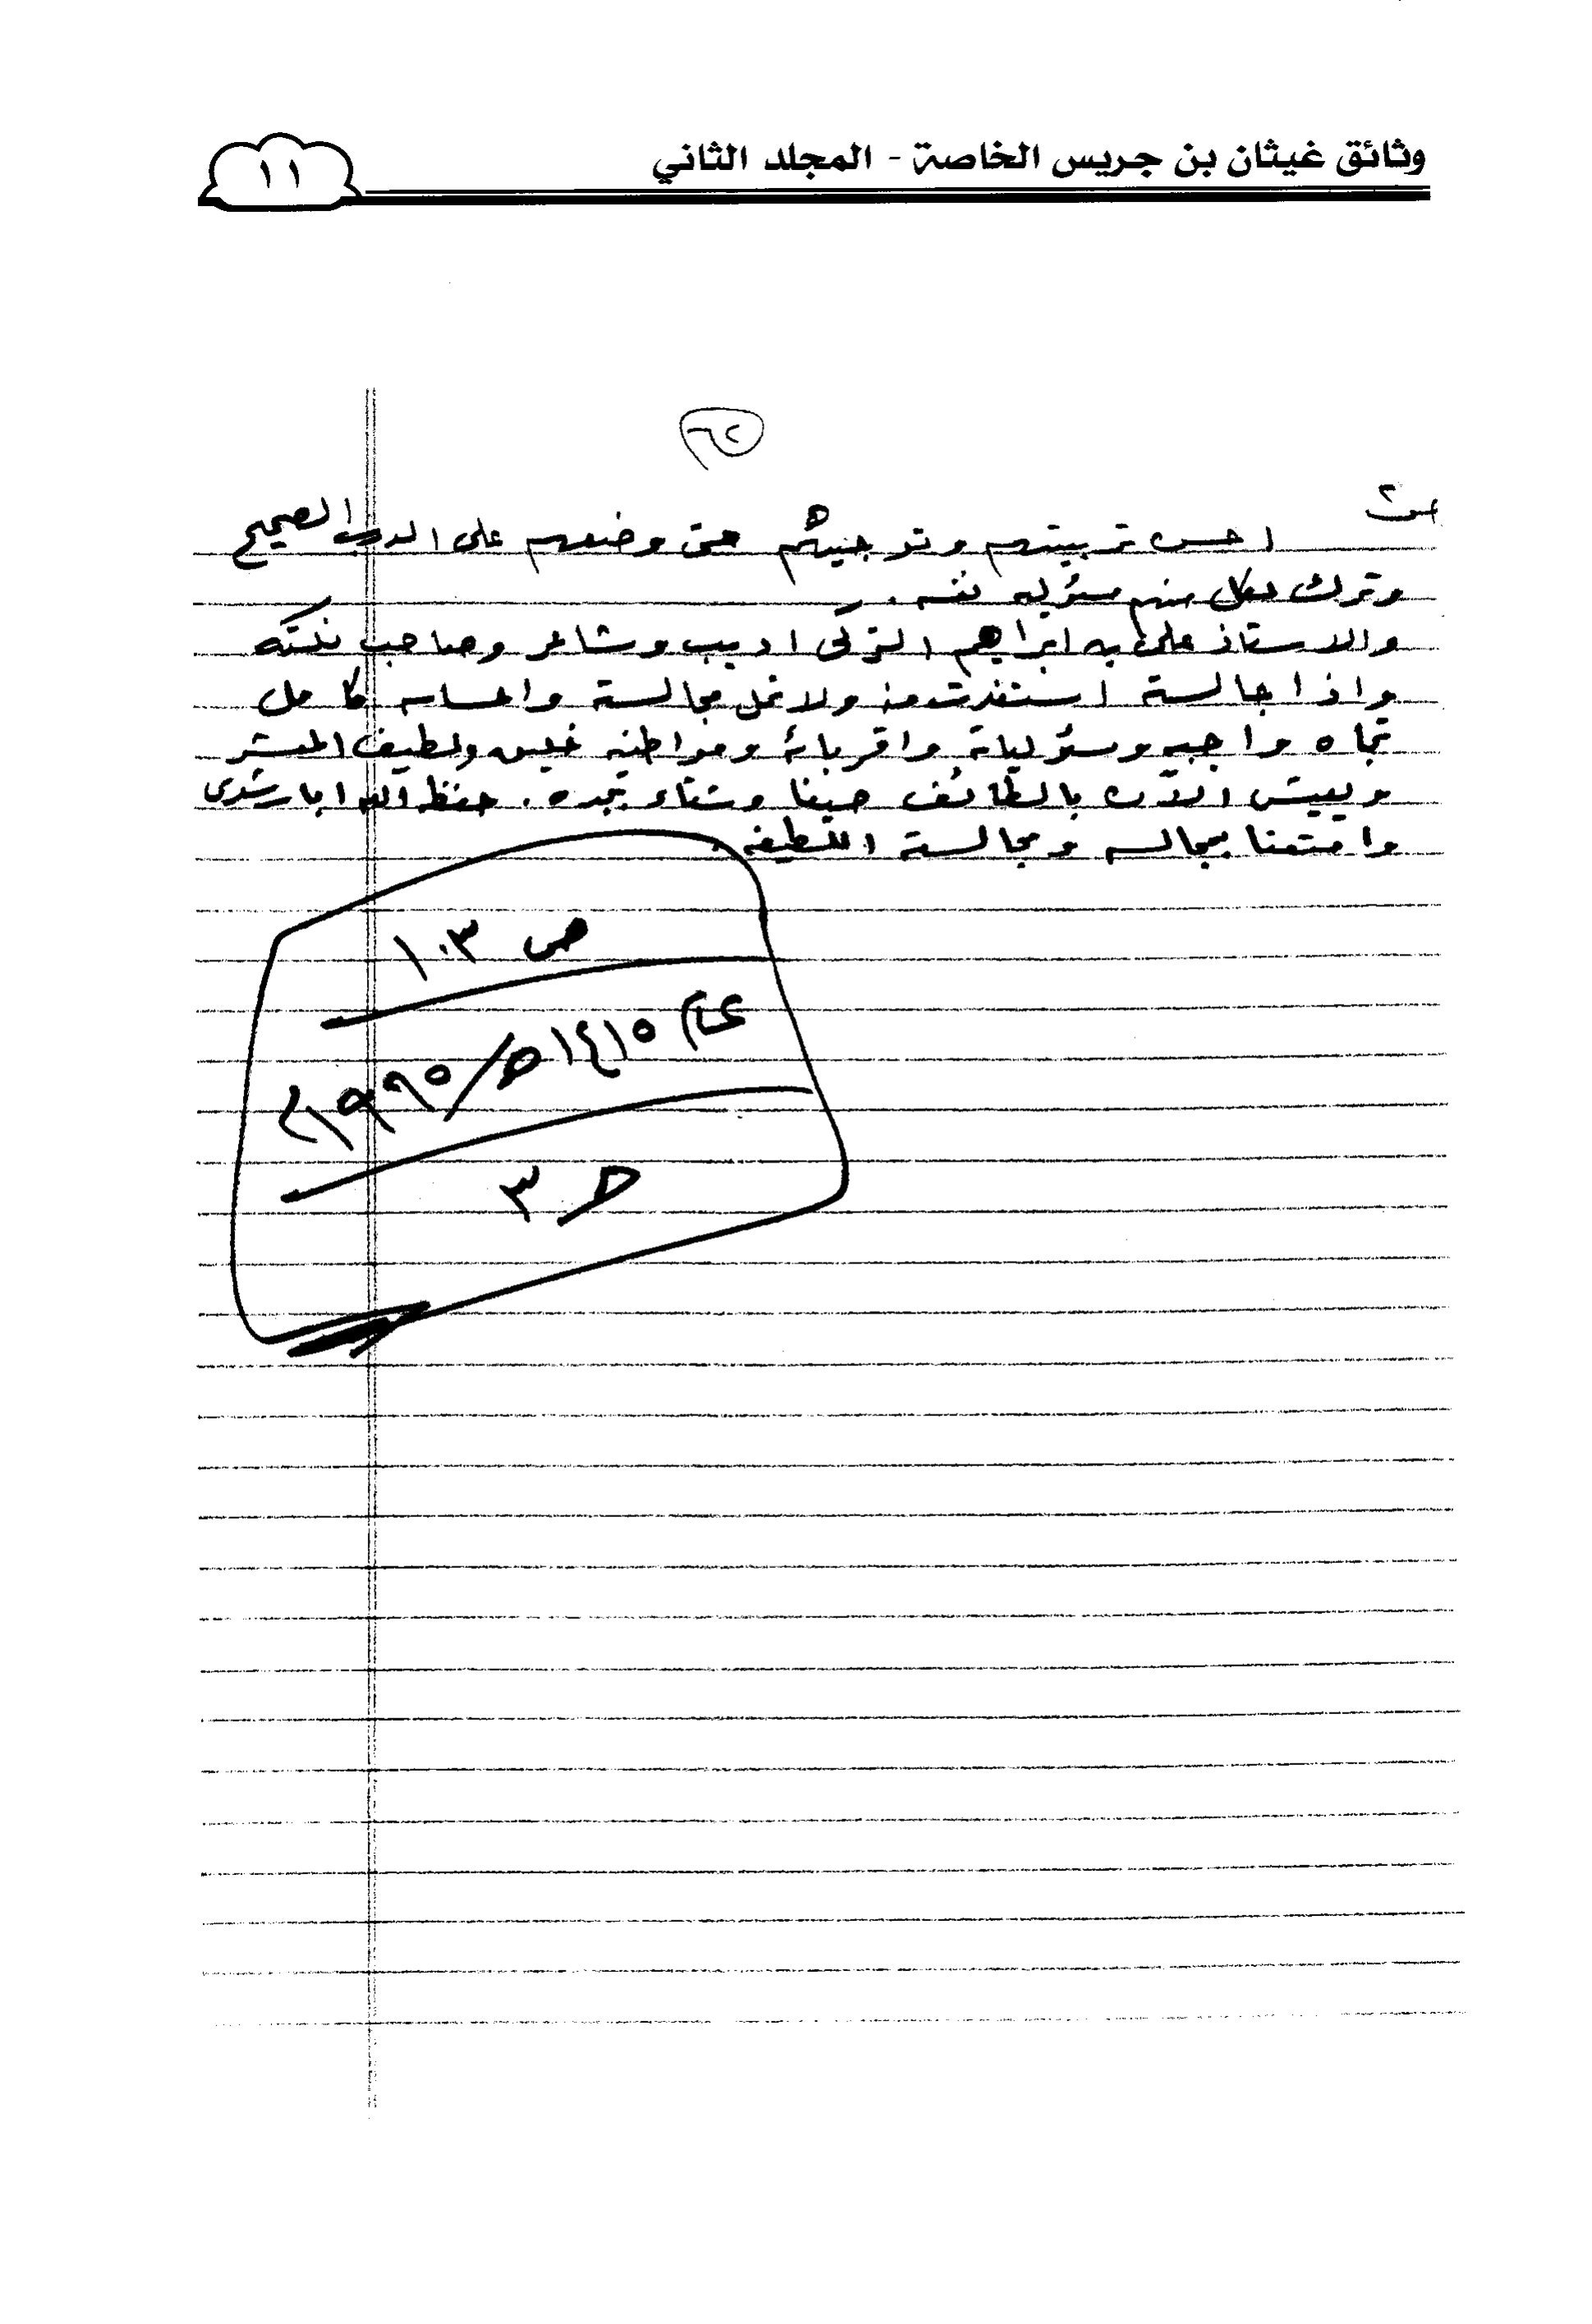 وثائق غيثان بن جريس الخاصة - المجلد الثاني
١١
احسن تربيتهم وتوجيههم حتى وضعهم على الدرب الصحيح
وترك لكل منهم مسئوليه نفسه .
والاستاذ على بن ابراهيم التركى اديب وشاعر وصاحب نكته
واذا جالسته استفدت منه ولا تمل مجالسته واحساسه كامل
تجاه واجبه ومسئولياته واقربائه ومواطنيه ولطيف المعشر
ويعيش الآن بالطائف صيفا وشتاء بجده . حفظ الله ابا رشدى
وامتعنا بمجالسه ومجالسته اللطيفه .
ص ١٠٣
عام ١٤١٥هـ/١٩٩٥م
ح ٣